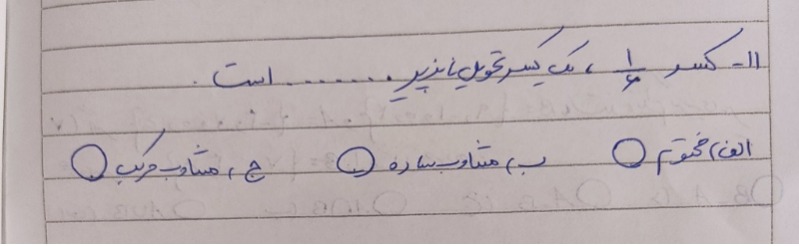 ۱۱- کسر ۱/۶ ، یک کسر تحویل ناپذیر ........ است.
الف) مختوم ○ ب) متناوب ساده ○ ج) متناوب مرکب ○